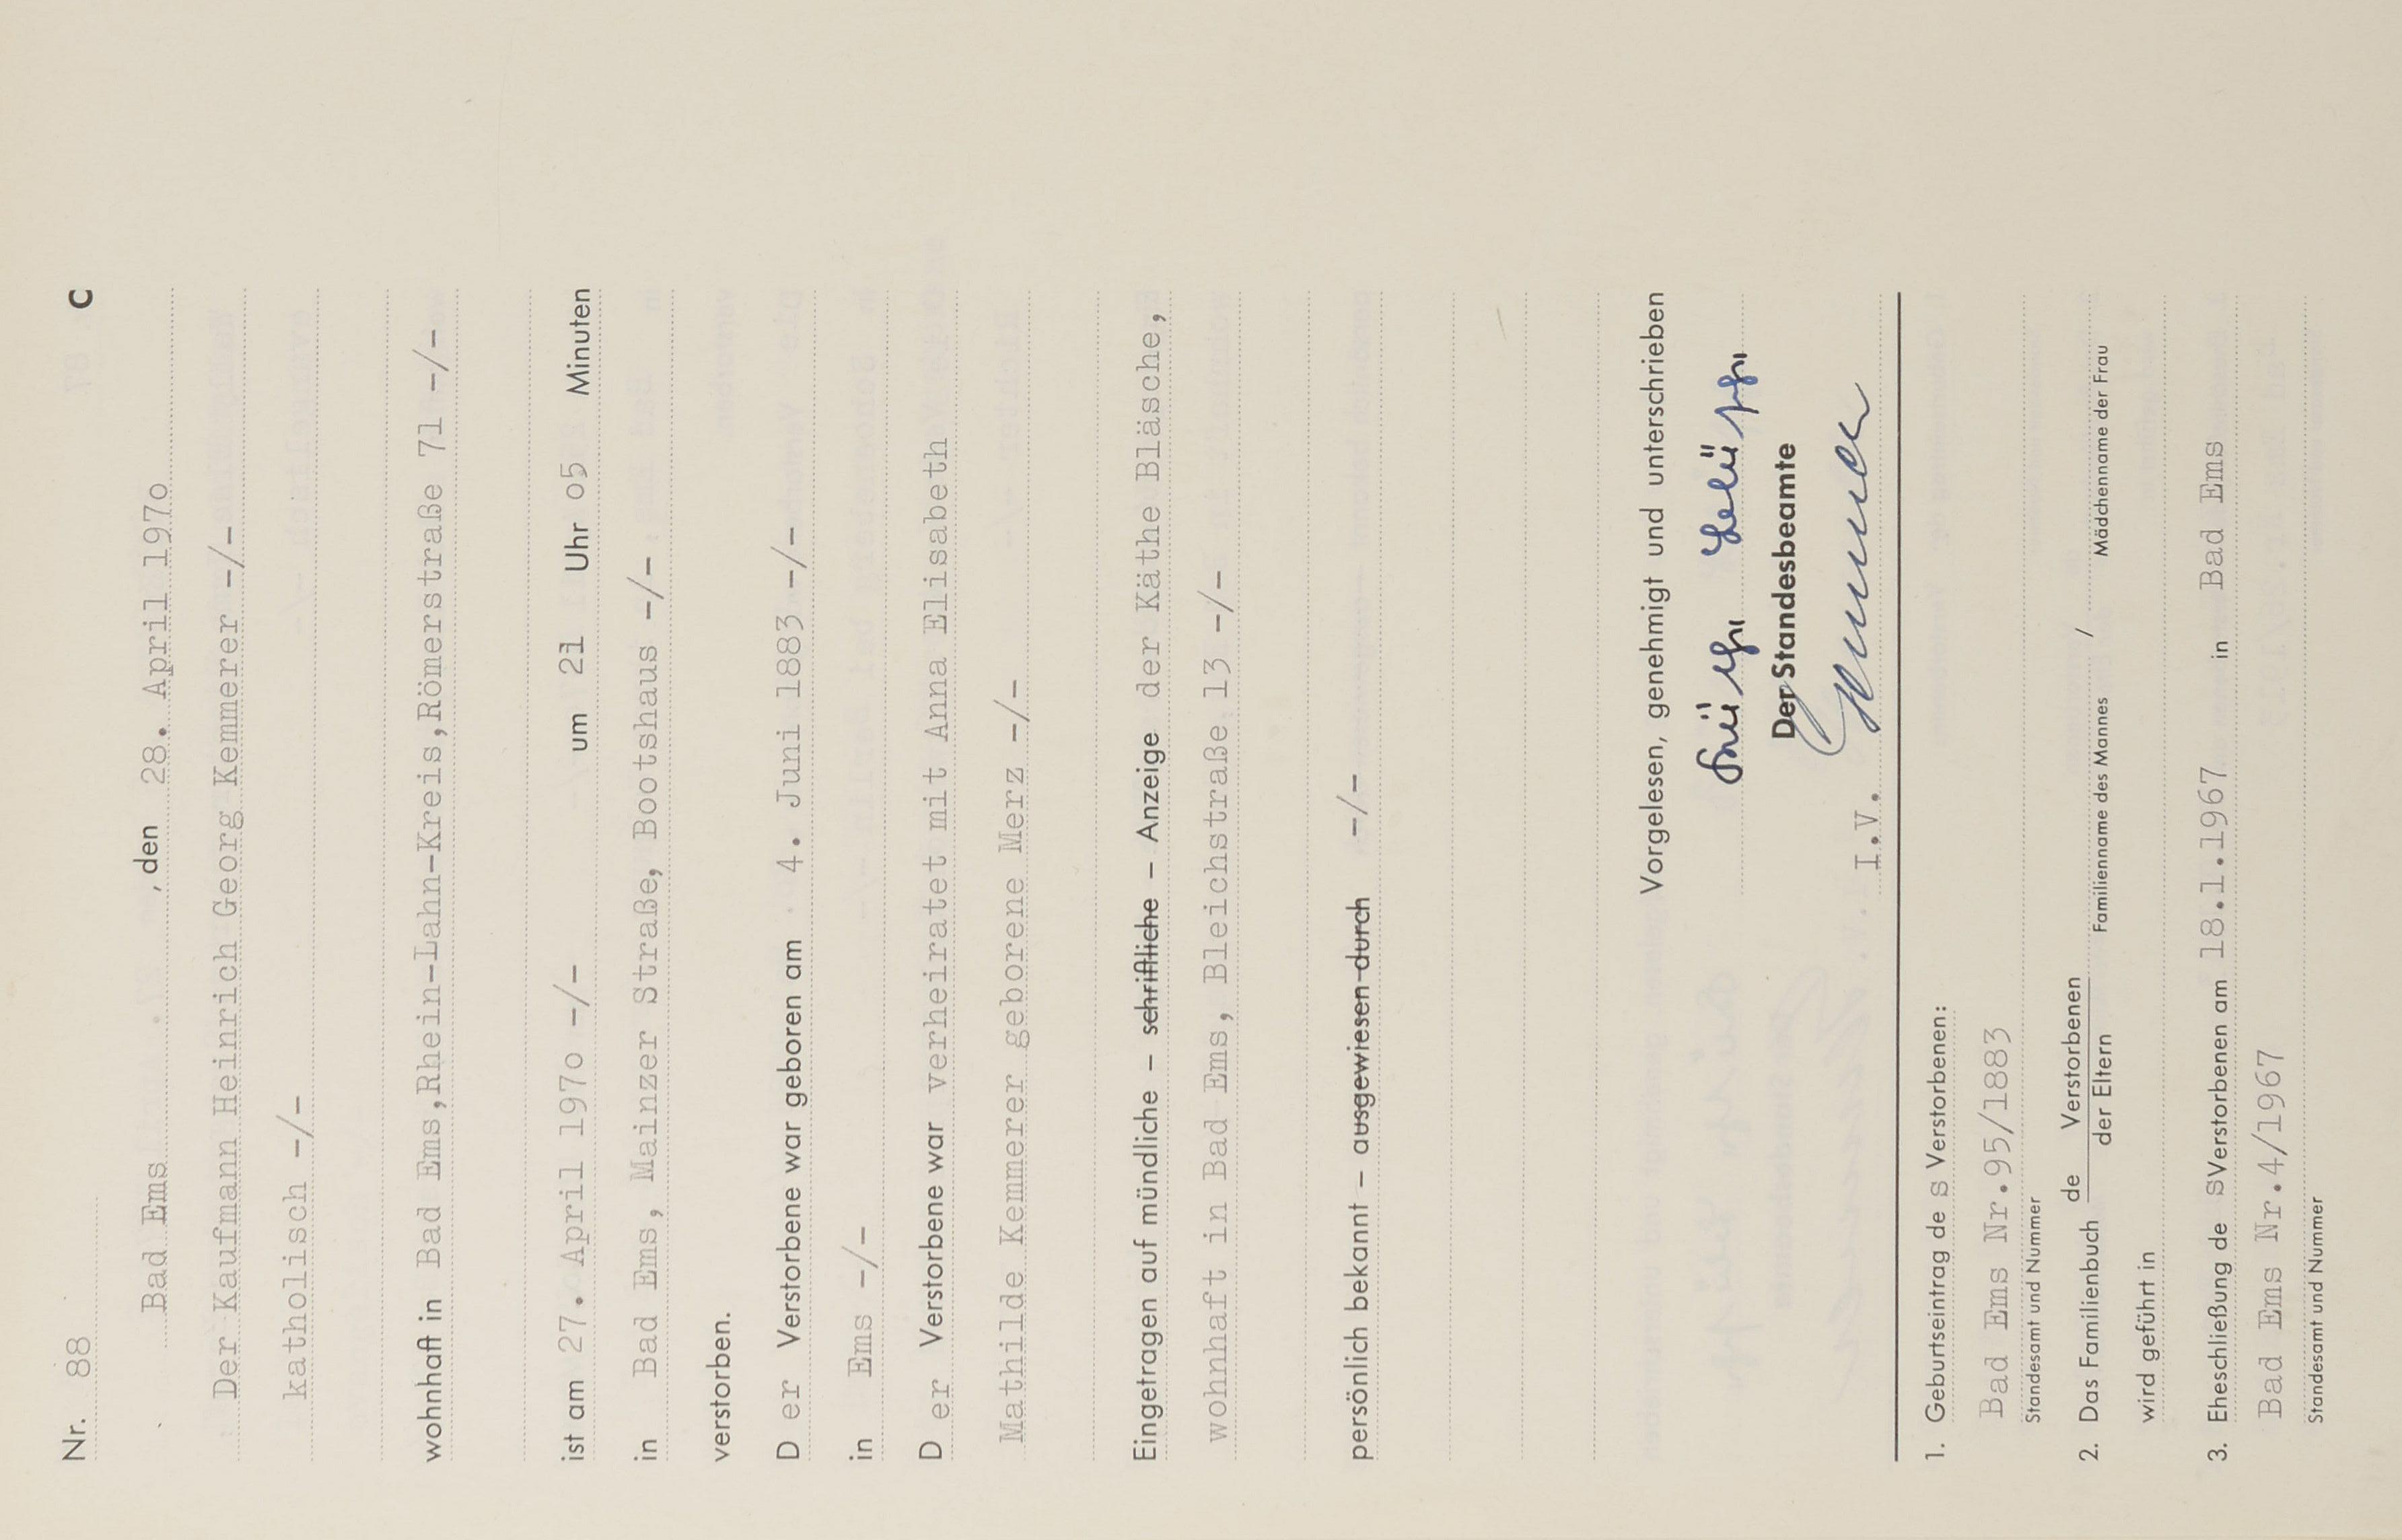 Nr. 88 C
Bad Ems , den 28. April 197o
Der Kaufmann Heinrich Georg Kemmerer -/-
katholisch -/-
wohnhaft in Bad Ems,Rhein-Lahn-Kreis,Römerstraße 71 -/-
ist am 27. April 197o -/- um 21 Uhr o5 Minuten
in Bad Ems, Mainzer Straße, Bootshaus -/-
verstorben.
D er Verstorbene war geboren am 4. Juni 1883 -/-
in Ems -/-
D er Verstorbene war verheiratet mit Anna Elisabeth
Mathilde Kemmerer geborene Merz -/-
Eingetragen auf mündliche - schriftliche - Anzeige der Käthe Bläsche,
wohnhaft in Bad Ems, Bleichstraße 13 -/-
persönlich bekannt - ausgewiesen durch -/-
Vorgelesen, genehmigt und unterschrieben
Der Standesbeamte
I.V.
1. Geburtseintrag de s Verstorbenen:
Bad Ems Nr.95/1883
Standesamt und Nummer
2. Das Familienbuch de Verstorbenen /
der Eltern Familienname des Mannes Mädchenname der Frau
wird geführt in
3. Eheschließung de sVerstorbenen am 18.1.1967 in Bad Ems
Bad Ems Nr.4/1967
Standesamt und Nummer